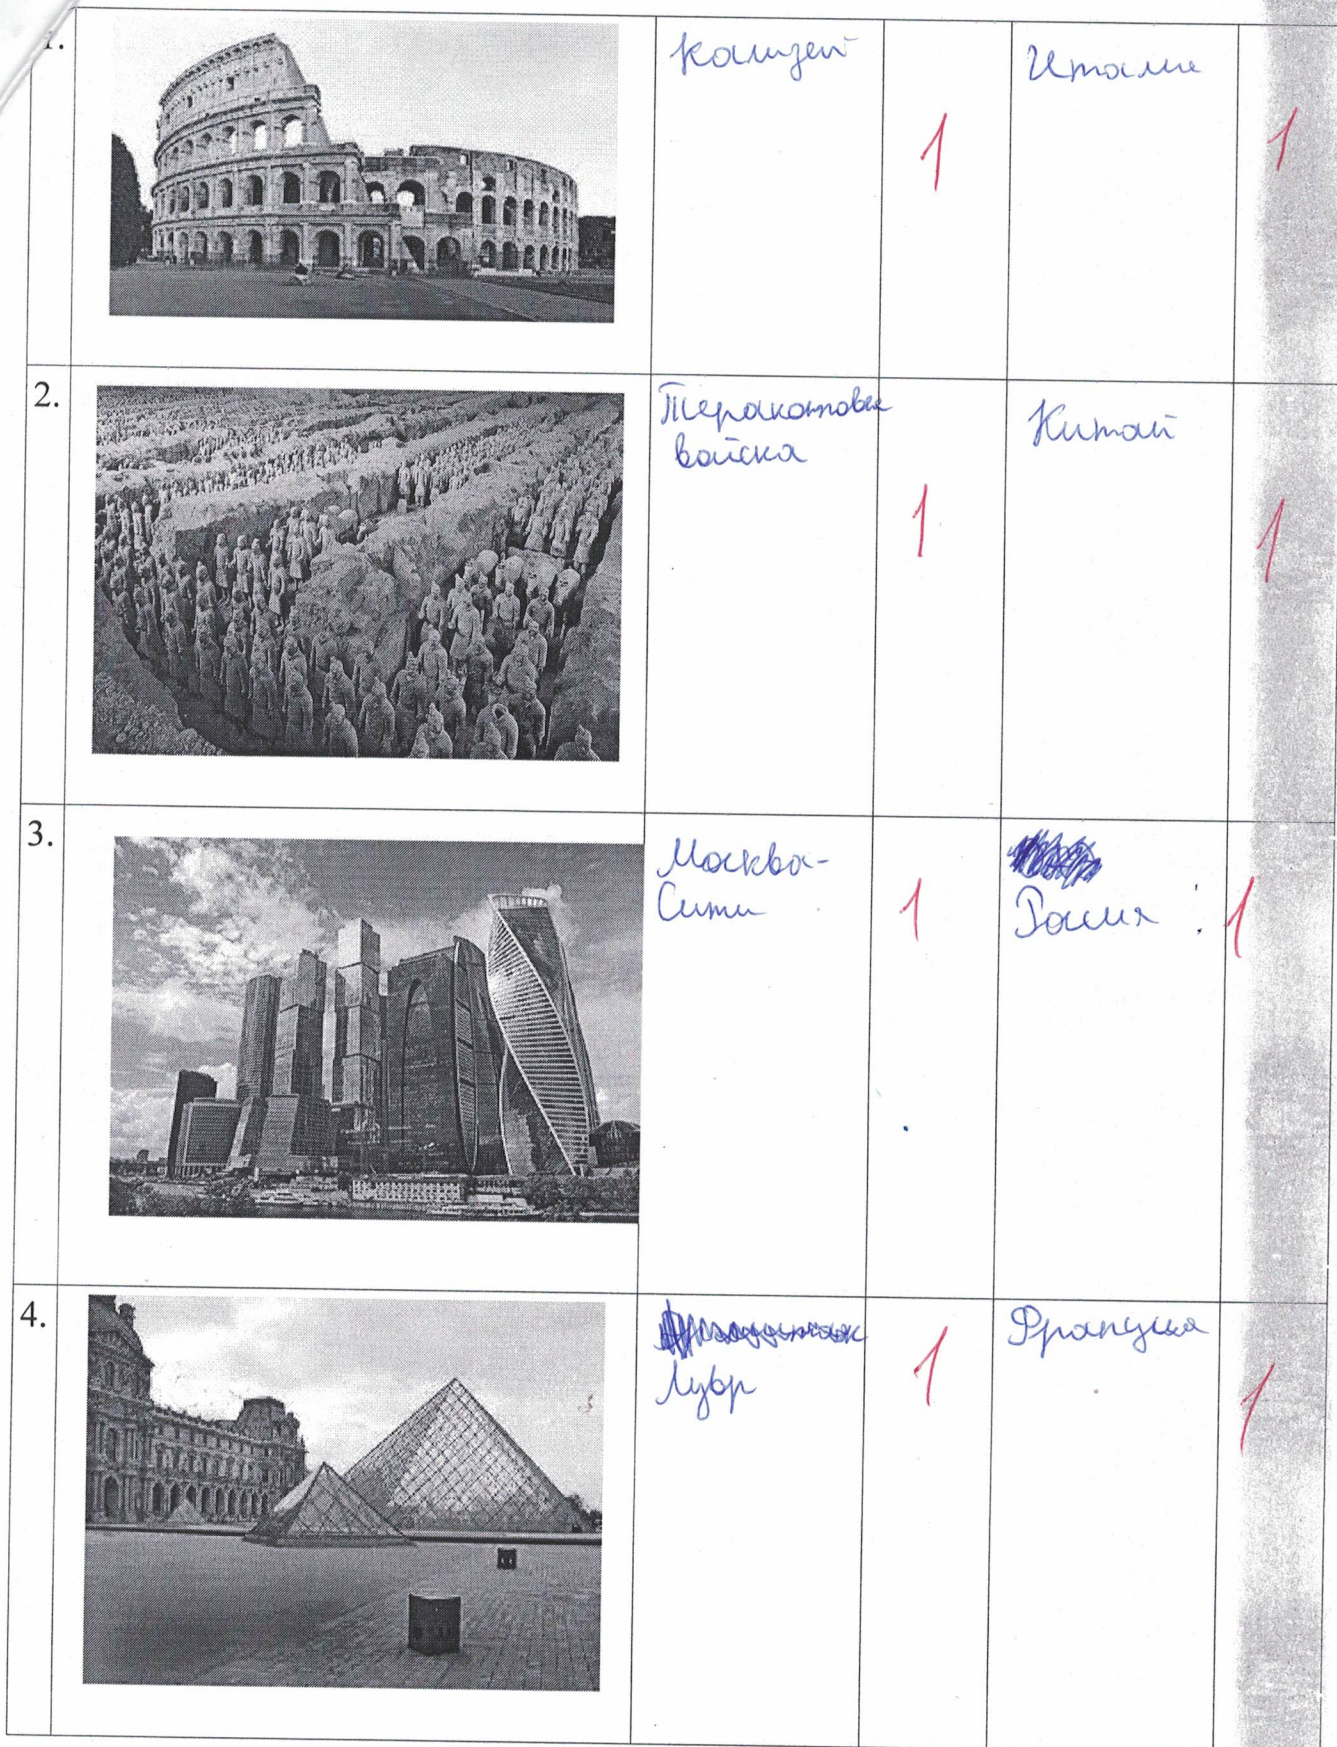 1.
Колизей
1
Италия
1
2.
Теракотовые
войска
1
Китай
1
3.
Москва-
Сити
1
Россия
1
4.
Лувр
1
Франция
1